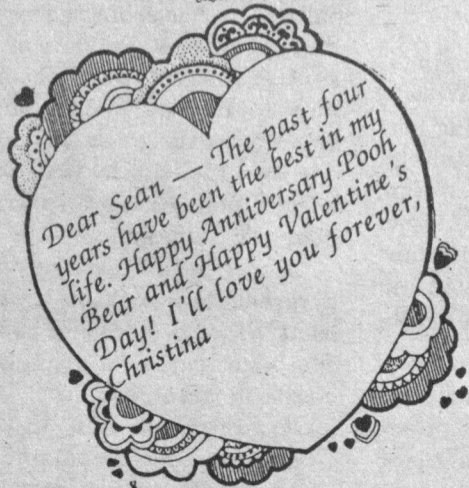 Dear Sean — The past four
years have been the best in my
life. Happy Anniversary Pooh
Bear and Happy Valentine's
Day! I'll love you forever,
Christina